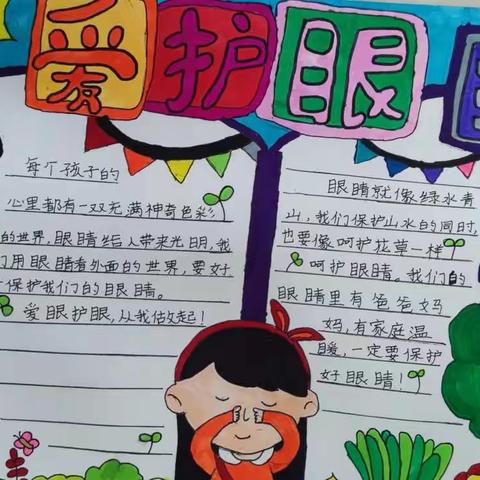 爱护眼
每个孩子的
心里都有一双充满神奇色彩
的世界,眼睛给人带来光明,我
们用眼睛看外面的世界,要好
好保护我们的眼睛。
爱眼护眼,从我做起!
眼睛就像绿水青
山,我们保护山水的同时,
也要像呵护花草一样
呵护眼睛。我们的
眼睛里有爸爸妈
妈,有家庭温
暖,一定要保护
好眼睛!